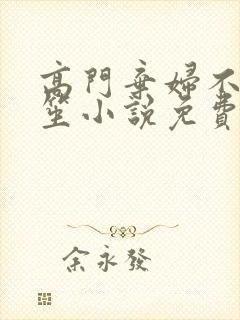 高門棄婦不
笙小說免費
余永發